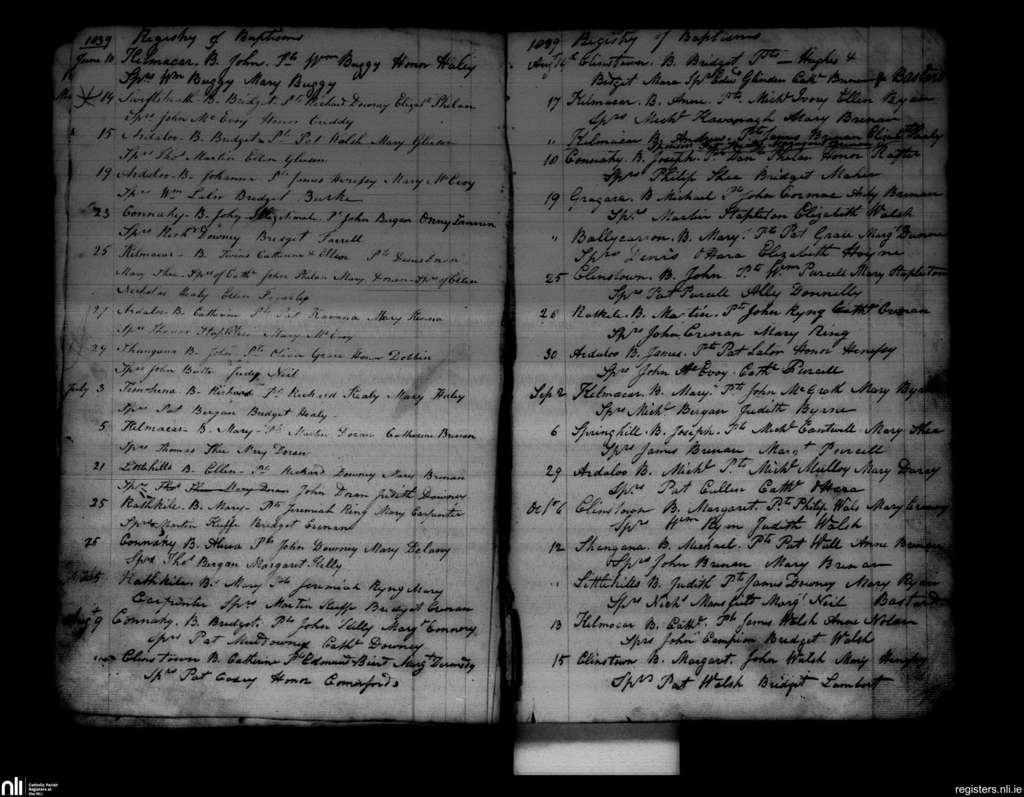 1839 Registry of Baptisms
June 10 Kilmacar. B. John. Pts Wm Buggy Honor Healy
Sprs Wm Buggy Mary Buggy
14 Swiftsheath B. Bridget. Pts Richard Downey Elizath Phelan
Sprs John Mc Evoy Honor Cuddy
15 Ardaloo. B. Bridget Pts Pat Walsh Mary Gleeson
Sprs Thos Martin Ellen Gleeson
19 Ardaloo. B. Johanna Pts James Henefsy Mary McEvoy
Sprs Wm Lalor Bridget Burke
23 Connahy. B. John Pts John Bergan
Sprs Richd Downey Bridget Farrell
25 Kilmacar B. Twins Catherine & Ellen Pts
Mary Shee. Sprs of Cath John Phelan Mary Doran Sprs of Ellen
Nicholas Healy Ellen Fogarty
27 Ardaloo B. Catherine Pts Pat Kavana Mary Keena
Sprs Thomas Mary McEvoy
27 Shangana B. John Pts Oliver Grace Honor Dobbin
Sprs John Butler Judy Neil
July 3 B. Richard Pts Richard Kealy Mary Healy
Sprs Pat Bergan Bridget Healy
5 Kilmacar B. Mary Pts Martin Doran Catherine Brenan
Sprs Thomas Shee Mary Doran
21 Littlehills B. Ellen Pts Richard Downey Mary Brenan
Sprs Thos Shee Mary Doran John Doran Judith Downey
25 Rathkile. B. Mary Pts Jeremiah Ring Mary Carpenter
Sprs Martin Keeffe Bridget Crenan
25 Connahy B. Pts John Downey Mary Delany
Sprs Thos Bergan Margaret Kelly
Rathkile. B. Mary Pts Jeremiah Ryng Mary
Carpenter Sprs Martin Keeffe Bridget Crenan
Augt 9 Connahy. B. Bridget. Pts John Kelly Margt Connory
Sprs Pat Downey Cathe Downey
Clinstown B. Catherine Pts Edmund Margt
Sprs Pat Casey Honor Comerford
1839 Registry of Baptisms
Augt 14 Clinstown. B. Bridget Pts Hughes &
Bidget Mara Sprs Edwd Cathe Brenan Bastard
17 Kilmacar. B. Anne. Pts Michl Ivory Ellen Ryan
Sprs Michl Kavanagh Mary Brenan
" Kilmacar B. Andrew. Pts James Brenan Elizth Healy
10 Connahy. B. Joseph. Pts Dan Phelan Honor Rafter
Sprs Philip Shea Bridget Maher
19 Gragara. B Michael Pts John Cormac Brenan
Sprs Martin Stapleton Elizabeth Walsh
" Ballycarron. B. Mary. Pts Pat Grace Margt Dunne
Sprs Denis OHara Elizabeth Hayne
25 Clinstown. B. John Pts Wm Purcell Mary Stapleton
Sprs Pat Purcell Ally Donnelly
26 Rathkile. B. Martin. Pts John Ryng Cathe Crenan
Sprs John Crenan Mary Ring
30 Ardaloo B. James. Pts Pat Lalor Honor Henefsy
Sprs John Mc Evoy. Cathe Purcell
Sep 2 Kilmacar. B. Mary. Pts John McGrath Mary
Sprs Michl Bergan Judith Byrne
6 Springhill. B. Joseph. Pts Michl Cantwell Mary Shea
Sprs James Brenan Margt Purcell
29 Ardaloo B. Michl Pts Michl Mulloy Mary Darcy
Sprs Pat Cullen Cathe OHara
Octr 6 Clinstown B. Margaret. Pts Philip Mary
Sprs Wm Ryan Judith Walsh
12 Shangana. B. Michael. Pts Pat Wall Anne
Sprs John Brenan Mary Brenan
" Littlehills B. Judith Pts James Downey Mary Ryan
Sprs Nichs Mansfield Margt Neil Bastard
13 Kilmacar B. Cathe. Pts James Walsh Anne Nolan
Sprs John Campion Bridget Walsh
15 Clinstown B. Margart. John Walsh Mary Henefsy
Sprs Pat Walsh Bridget Lambert
nli
Catholic Parish
Registers at
the NLI
registers.nli.ie